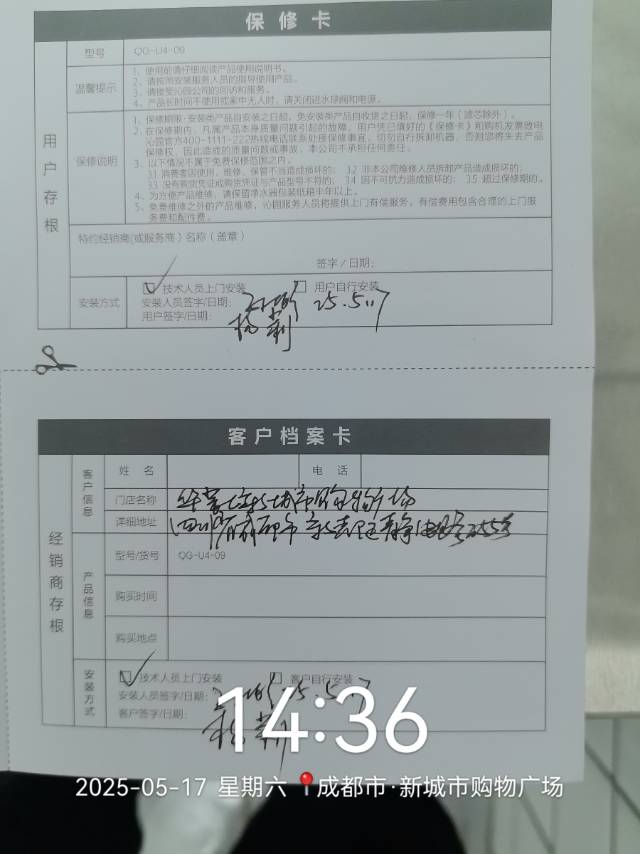 保修卡
用户存根
型号
QG-U4-09
温馨提示
1、使用前请仔细阅读产品使用说明书。
2、请按照安装服务人员的指导使用产品。
3、请接受沁园公司的回访和服务。
4、产品长时间不使用或家中无人时，请关闭进水球阀和电源。
保修说明
1、保修期限：安装类产品自安装之日起，免安装类产品自收货之日起，保修一年（滤芯除外）。
2、在保修期内，凡属产品本身质量问题引起的故障，用户凭已填好的《保修卡》和购机发票致电
沁园官方400-1111-222热线电话联系处理保修事宜，切勿自行拆卸机器，否则您将失去产品
保修权，因此造成的质量问题或事故，本公司不承担任何责任。
3、以下情况不属于免费保修范围之内。
3.1 消费者因使用、维修、保管不当造成损坏的；3.2 非本公司维修人员拆卸产品造成损坏的；
3.3 没有购货凭证或购货凭证与产品型号不符的；3.4 因不可抗力造成损坏的；3.5 超过保修期的。
4、为方便产品维修，请保留净水器包装纸箱半年以上。
5、免费维修之外的产品维修，沁园服务人员将提供上门有偿服务，有偿费用包含合理的上门服
务费和配件费。
特约经销商(或服务商）名称（盖章）
签字／日期：
安装方式
技术人员上门安装
用户自行安装
安装人员签字/日期：
25.5.17
用户签字/日期：
客户档案卡
经销商存根
客户信息
姓 名
电 话
门店名称
新城市购物广场
详细地址
四川省成都市
产品信息
型号/货号
QG-U4-09
购买时间
购买地点
安装方式
技术人员上门安装
客户自行安装
安装人员签字/日期：
25.5.17
客户签字/日期：
14:36
2025-05-17 星期六 成都市·新城市购物广场